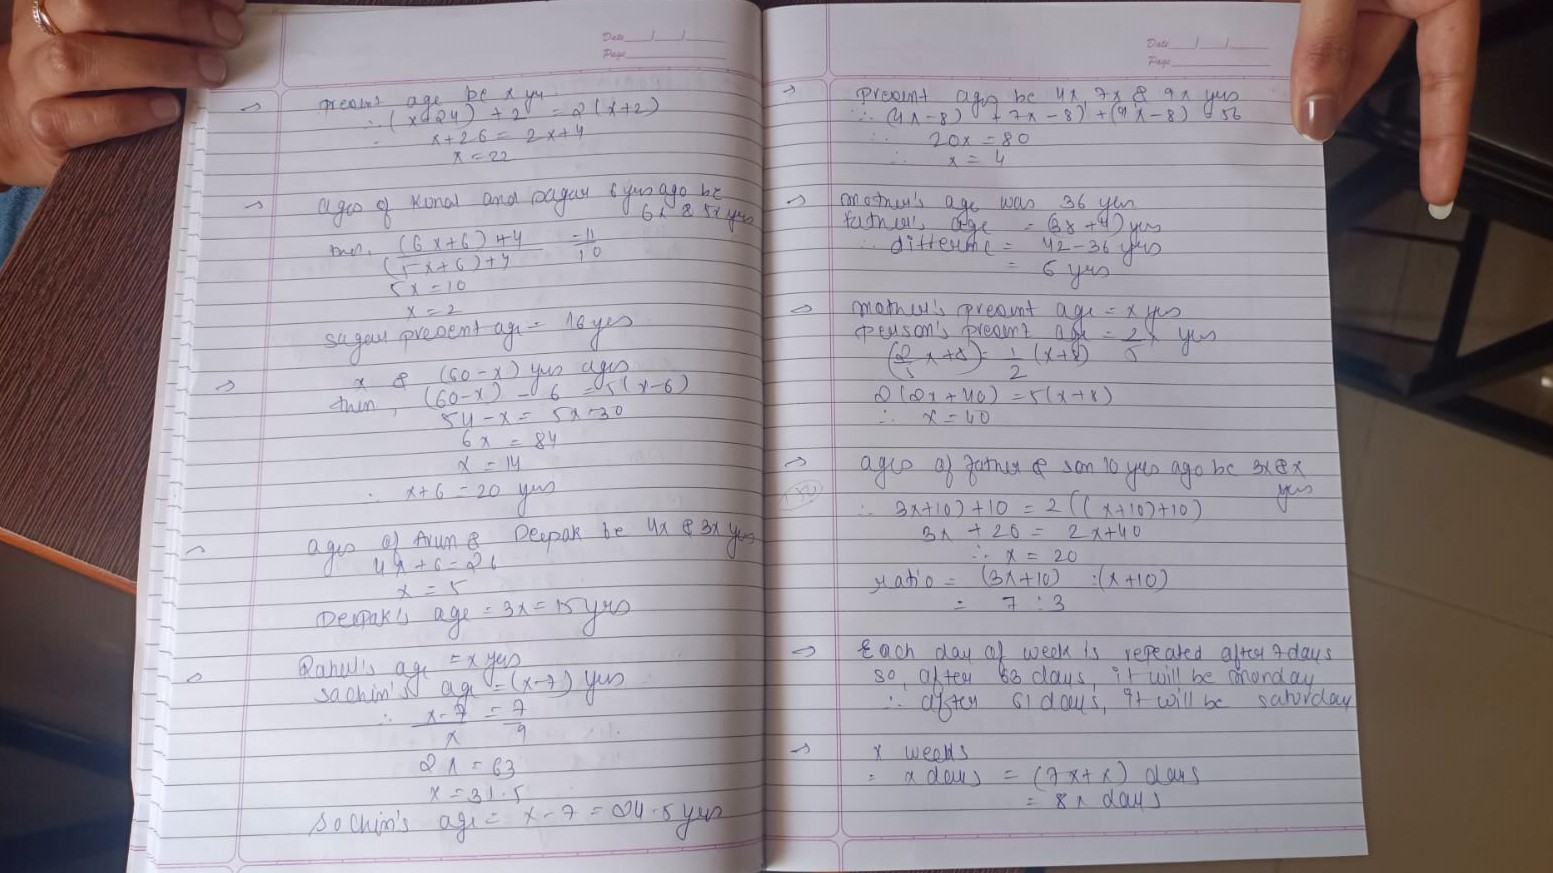 Date
Page
→ present age be x yr
∴ (x+24) + 2 = 2(x+2)
x+26 = 2x+4
x = 22
→ ages of Kunal and sagar 6 yrs ago be
6x & 5x yrs
then, (6x+6)+4 / (5x+6)+4 = 11/10
5x = 10
x = 2
sagar present age = 16 yrs
→ x & (60-x) yrs ages
then, (60-x) - 6 = 5(x-6)
54-x = 5x-30
6x = 84
x = 14
∴ x+6 = 20 yrs
→ ages of Arun & Deepak be 4x & 3x yrs
4x+6 = 26
x = 5
Deepak's age = 3x = 15 yrs
→ Rahul's age = x yrs
sachin's age = (x-7) yrs
∴ x-7/x = 7/9
2x = 63
x = 31.5
Sachin's age = x-7 = 24.5 yrs
Date
Page
→ present ages be 4x, 7x & 9x yrs
∴ (4x-8) + 7x-8) + (9x-8) 56
∴ 20x = 80
∴ x = 4
→ mother's age was 36 yrs
father's age = (38+4) yrs
∴ difference = 42-36 yrs
= 6 yrs
→ mother's present age = x yrs
person's present age = 2/5 x yrs
(2/5 x+8) = 1/2 (x+8)
2(2x+40) = 5(x+8)
∴ x = 40
→ ages of father & son 10 yrs ago be 3x & x
yrs
∴ 3x+10)+10 = 2((x+10)+10)
3x + 20 = 2x+40
∴ x = 20
ratio = (3x+10) :(x+10)
= 7 : 3
→ Each day of week is repeated after 7 days
so, after 63 days, it will be monday
∴ after 61 days, it will be saturday
→ x weeks
= x days = (7x+x) days
= 8x days